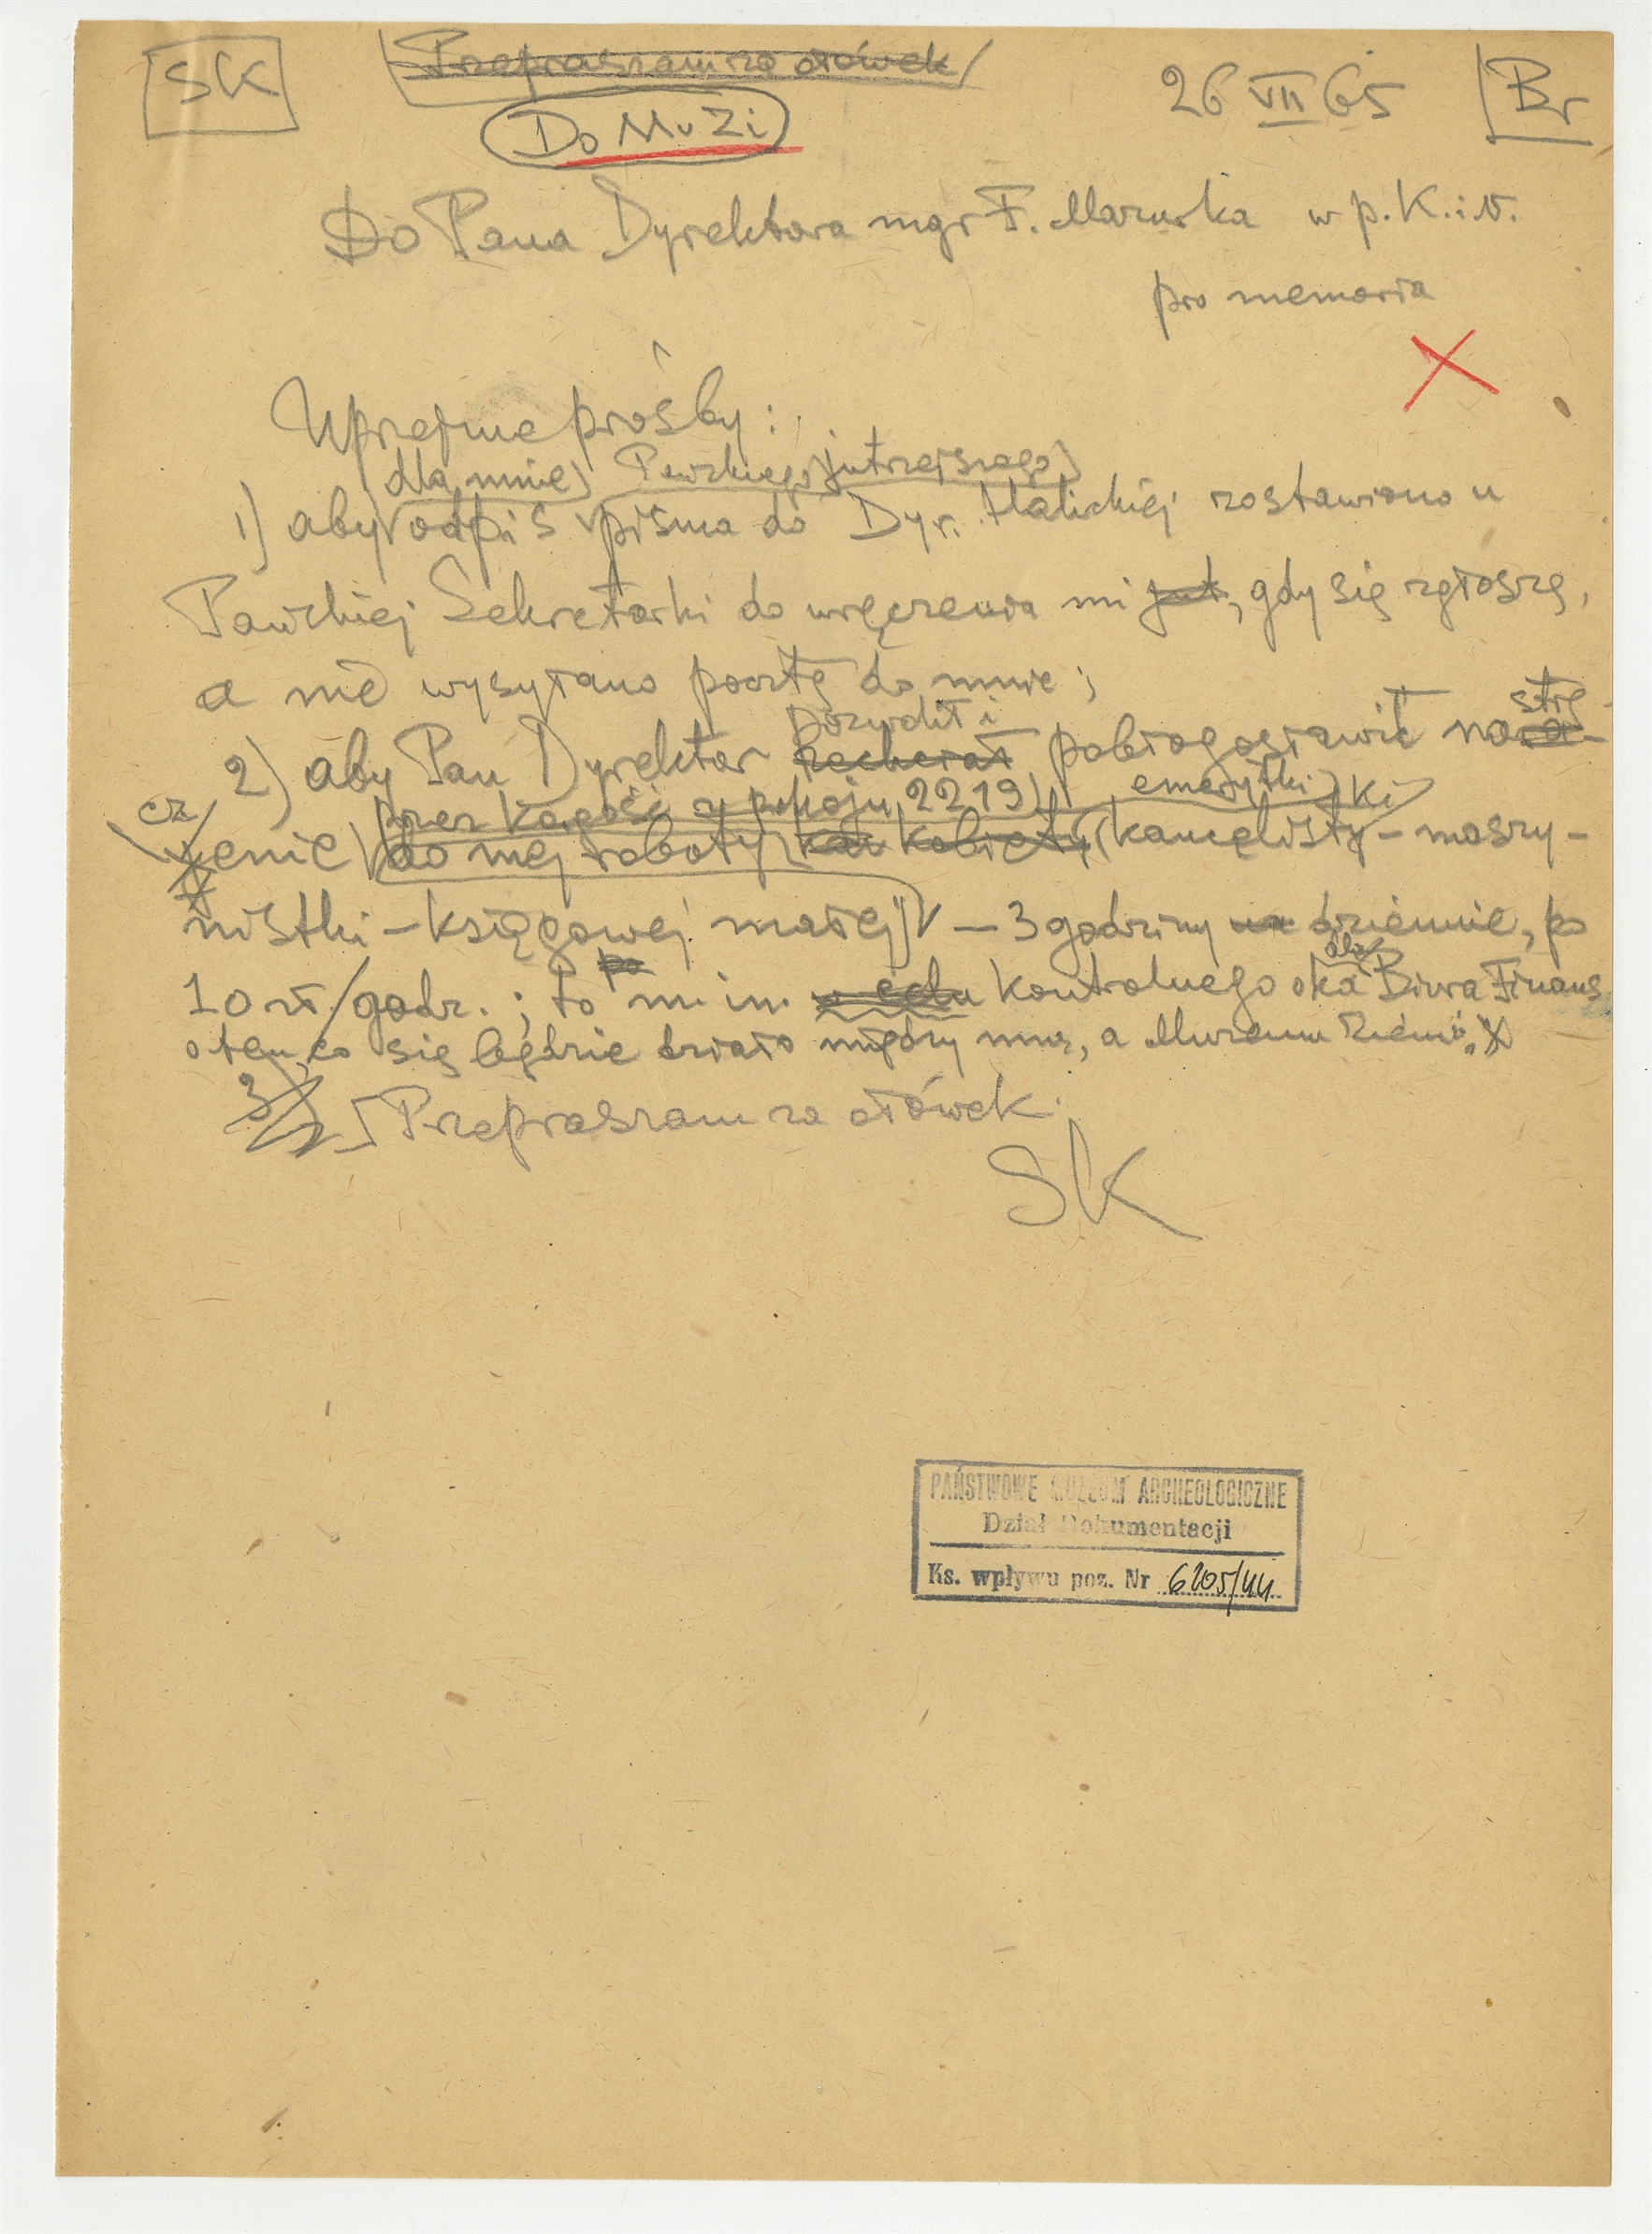 SK
Przepraszam za ołówek
26 VII 65
Br
Do MuZi
Do Pana Dyrektora mgr F. Mazurka w p. K. i N.
pro memoria
Uprzejme prośby:
dla mnie Pańskiego jutrzejszego
1) aby odpis pisma do Dyr. Halickiej zostawiono u
Pańskiej Sekretarki do wręczenia mi, gdy się zgłoszę,
a nie wysyłano pocztą do mnie;
strę
2) aby Pan Dyrektor pobłogosławił na
przez kogoś z pokoju 2219 emerytki ki
cz
enie do mej roboty kobiety kancelisty - maszy-
nistki - księgowej małej - 3 godziny dziennie, po
10 zł/godz.; to mi in. w celu kontrolnego oka Biura Finans
dla
o tem, co się będzie działo między mną, a Muzeum Ziemi.
3) Przepraszam za ołówek.
SK
PAŃSTWOWE MUZEUM ARCHEOLOGICZNE
Dział Dokumentacji
Ks. wpływu poz. Nr 6205/44